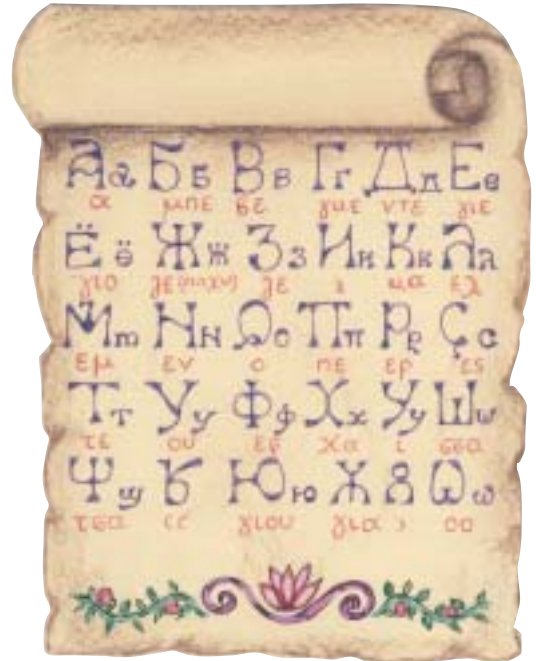 Аа Бб Вв Гг Дд Ее
α μπε βε γιε ντε γιε
Ёё Жж Зз Ии Кк Лл
γιο ζε(παχυ) ζε ι κα ελ
Мm Нн Оо Пп Рр Сс
εμ εν ο πε ερ ες
Тт Уу Фф Хх Уу Шш
τε ου εφ χα ι σσα
Ψψ Ѣ Юю Ж 8 Ѡѡ
τσα γιου για οο